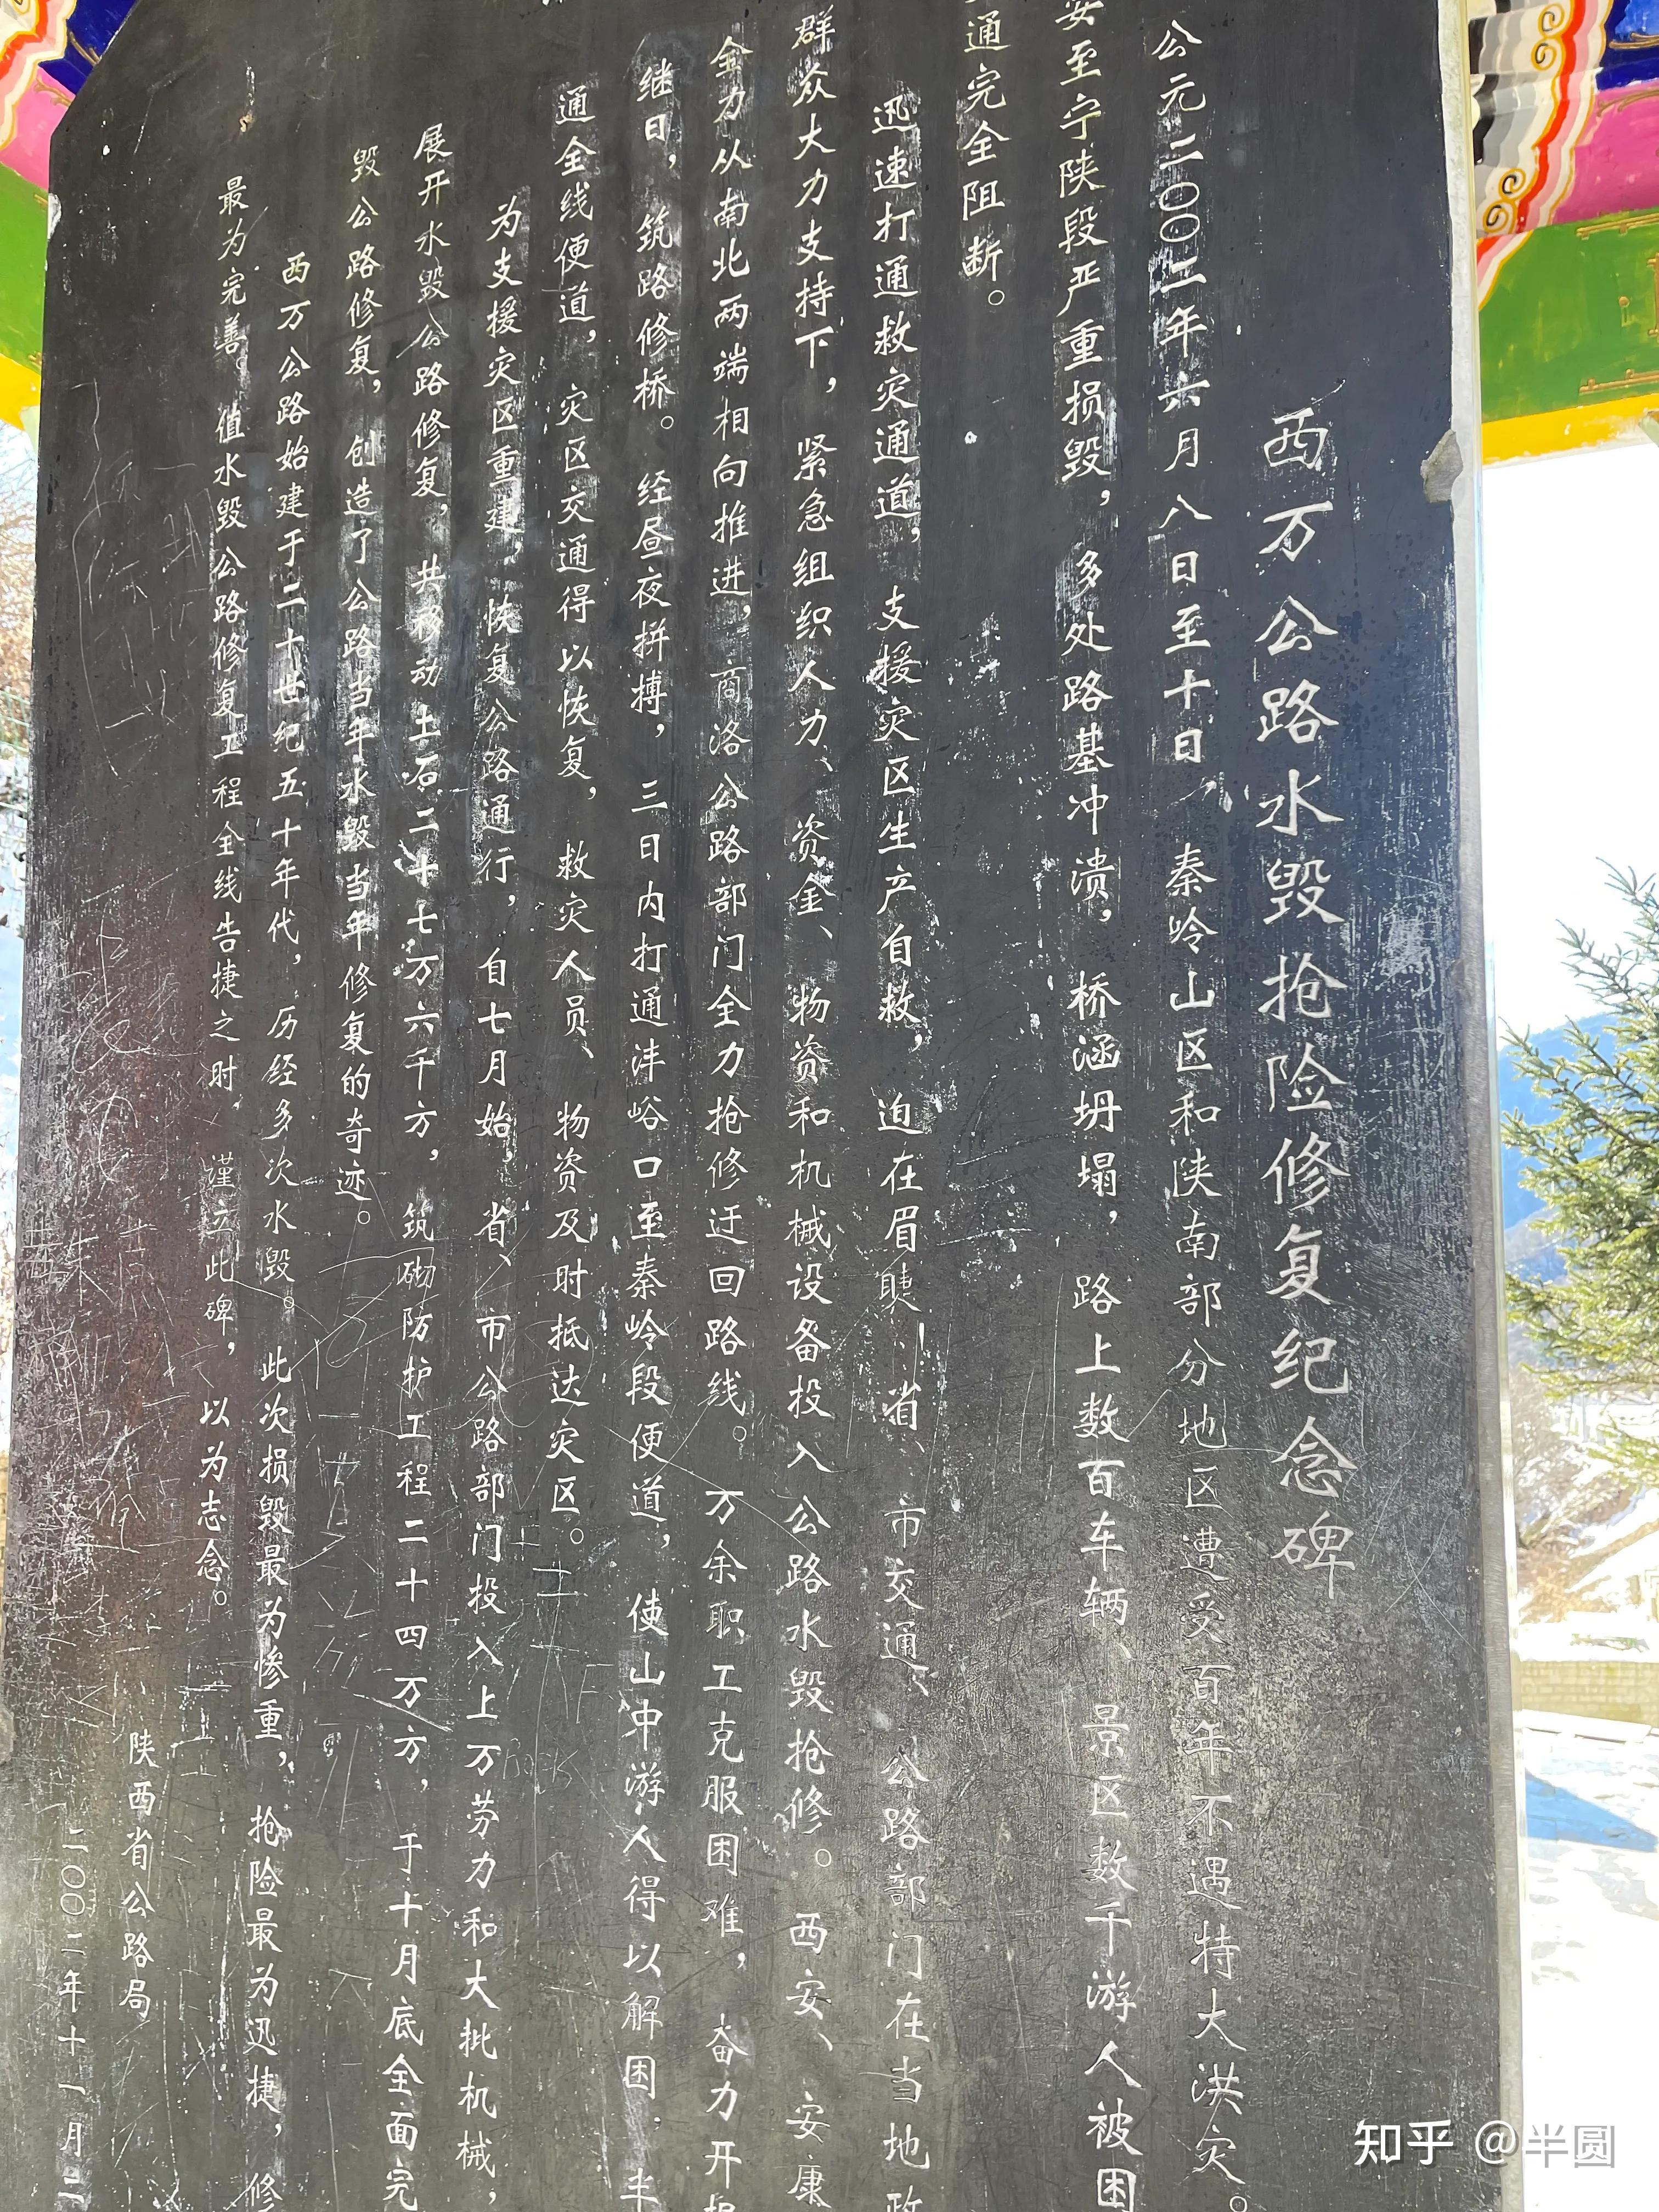 西万公路水毁抢险修复纪念碑
公元二〇〇二年六月八日至十日，秦岭山区和陕南部分地区遭受百年不遇特大洪灾。
安至宁陕段严重损毁，多处路基冲溃，桥涵坍塌，路上数百车辆、景区数千游人被困
通完全阻断。
迅速打通救灾通道，支援灾区生产自救，迫在眉睫！省、市交通、公路部门在当地政
群众大力支持下，紧急组织人力、资金、物资和机械设备投入公路水毁抢修。西安、安康
全力从南北两端相向推进，商洛公路部门全力抢修迂回路线。万余职工克服困难，奋力开
继日，筑路修桥。经昼夜拼搏，三日内打通沣峪口至秦岭段便道，使山中游人得以解困.
通全线便道，灾区交通得以恢复，救灾人员、物资及时抵达灾区。
为支援灾区重建，恢复公路通行，自七月始，省、市公路部门投入上万劳力和大批机械，
展开水毁公路修复，共移动土石二十七万六千方，筑砌防护工程二十四万方，于十月底全面完
毁公路修复，创造了公路当年水毁当年修复的奇迹。
西万公路始建于二十世纪五十年代，历经多次水毁。此次损毁最为惨重，抢险最为迅捷，修
最为完善。值水毁公路修复工程全线告捷之时，谨立此碑，以为志念。
陕西省公路局
二〇〇二年十一月二
知乎 @半圆